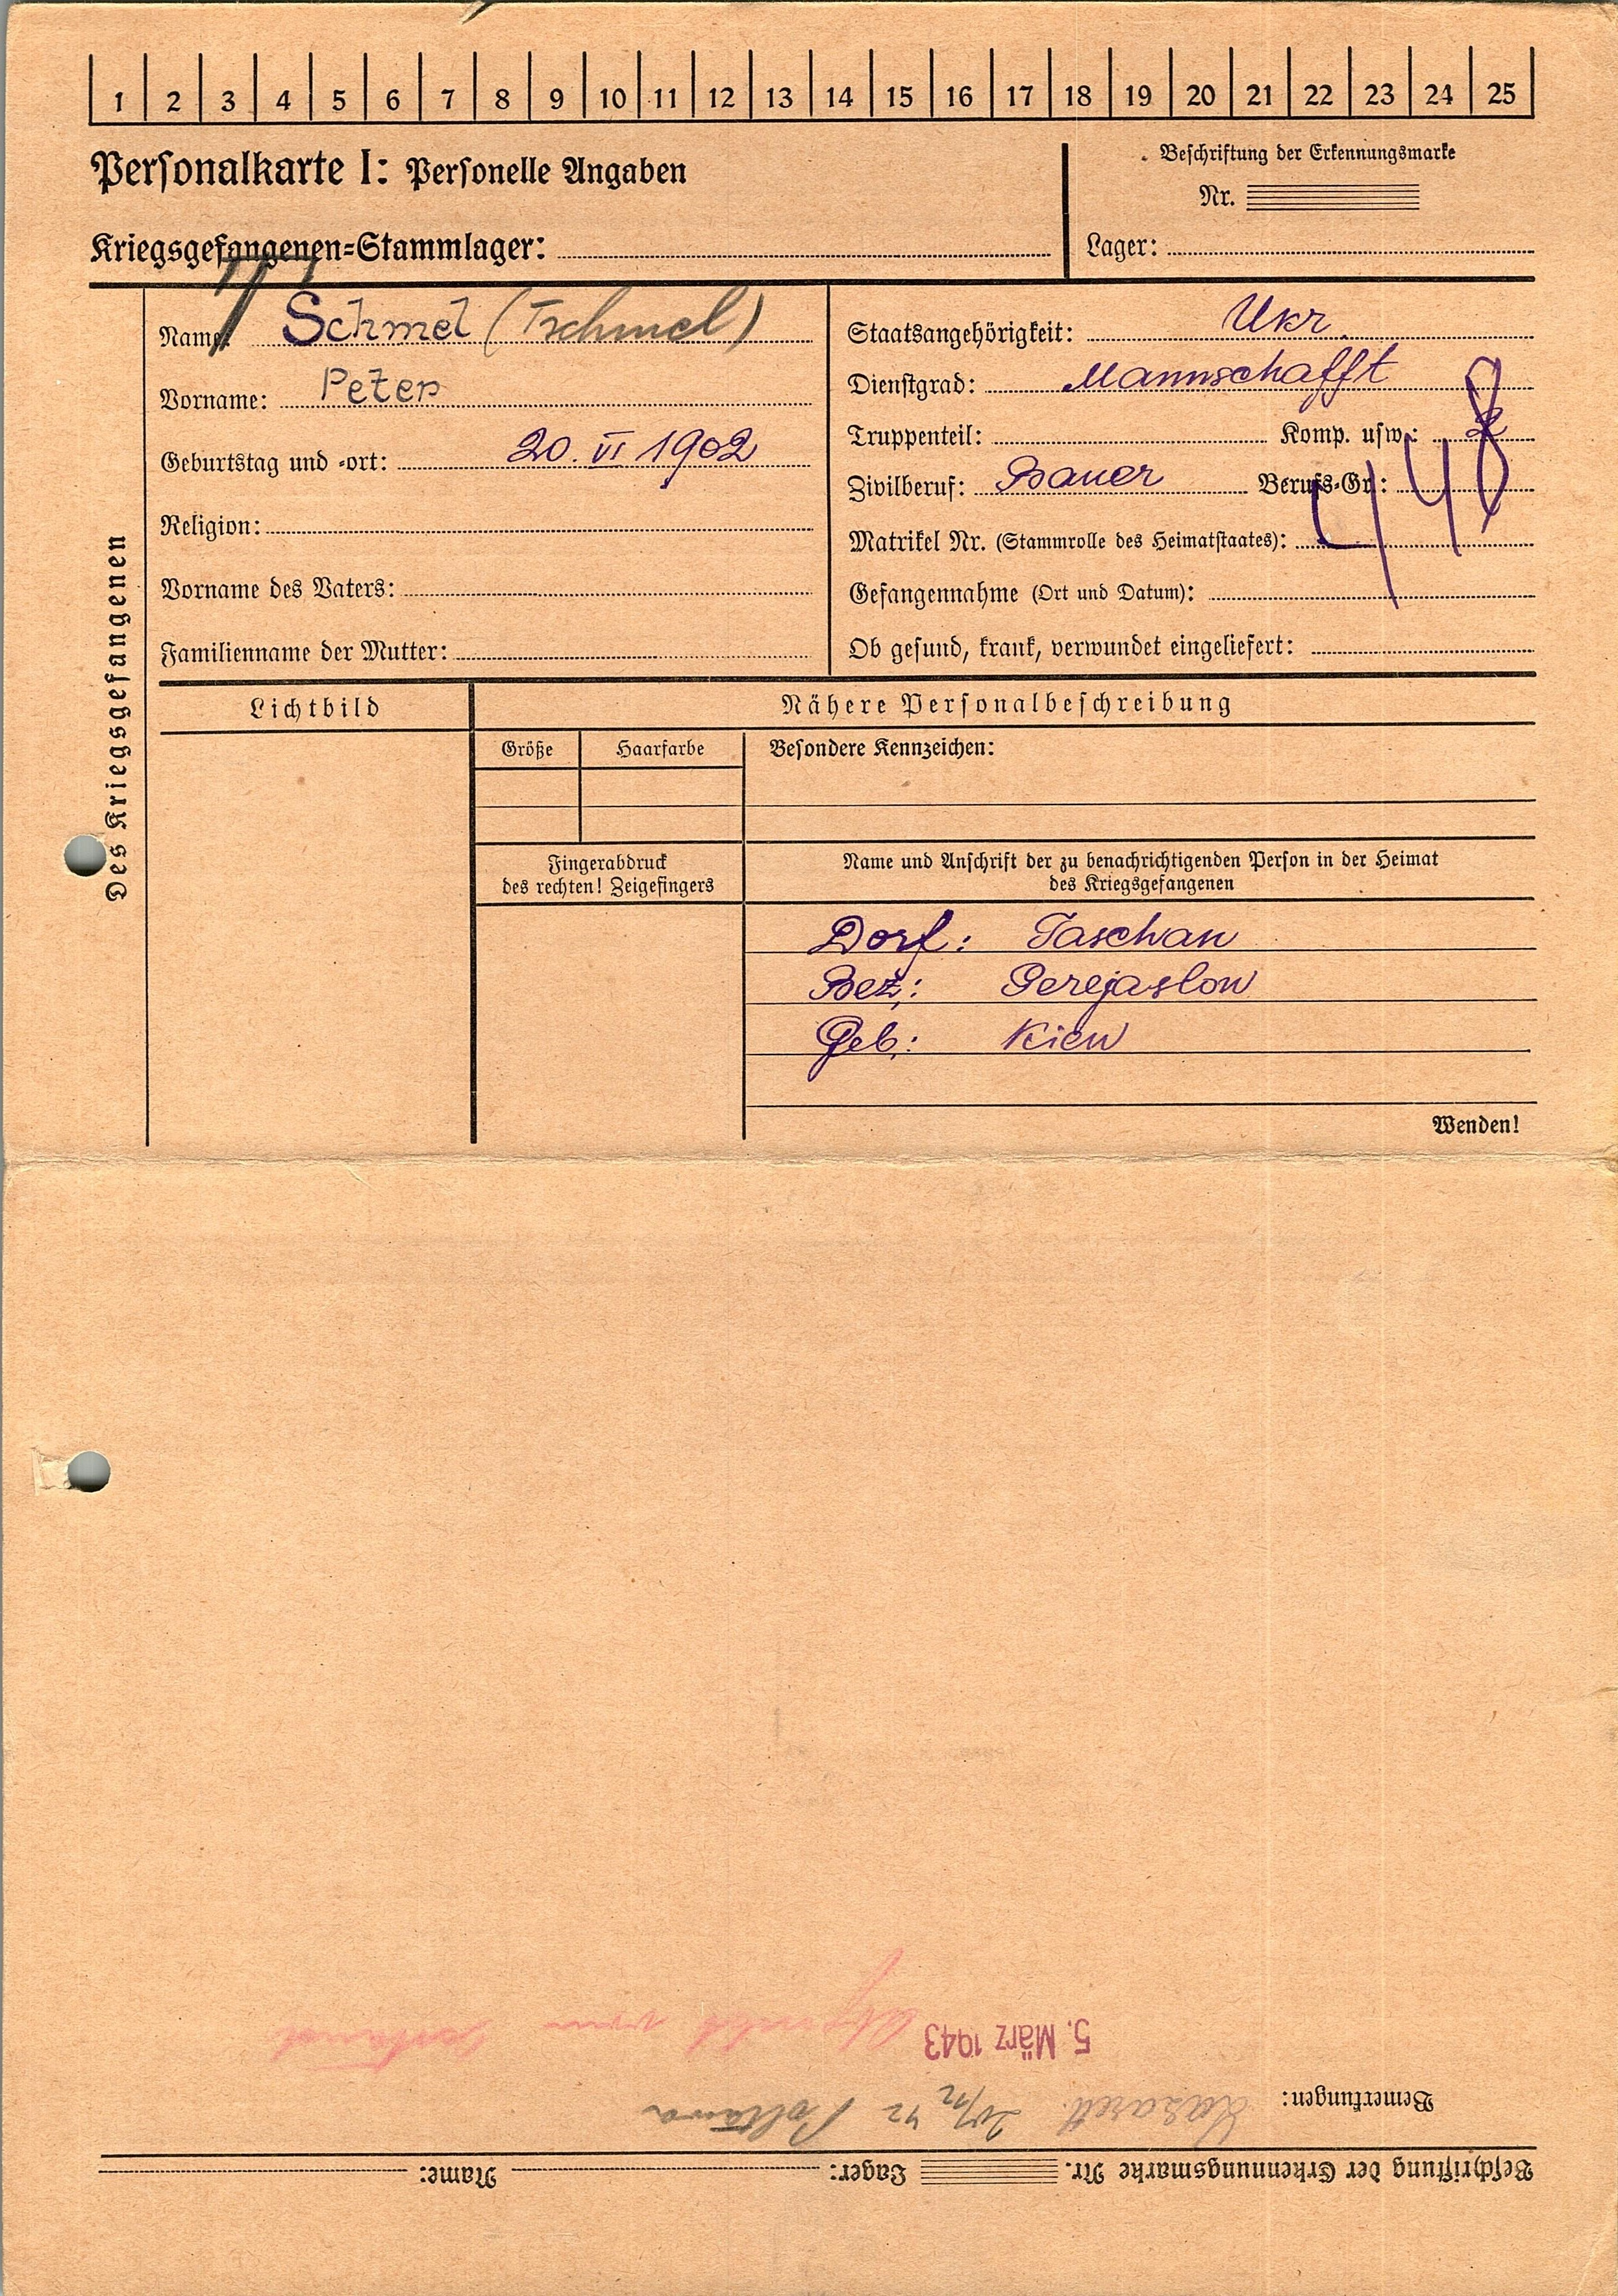 1 2 3 4 5 6 7 8 9 10 11 12 13 14 15 16 17 18 19 20 21 22 23 24 25
Personalkarte I: Personelle Angaben
Beschriftung der Erkennungsmarke
Nr.
Kriegsgefangenen-Stammlager:
Lager:
Des Kriegsgefangenen
Name: Schmel (Tschmel)
Vorname: Peter
Geburtstag und -ort: 20. VI 1902
Religion:
Vorname des Vaters:
Familienname der Mutter:
Staatsangehörigkeit: Ukr.
Dienstgrad: Mannschafft
Truppenteil: Komp. usw.: 2
Zivilberuf: Bauer Berufs-Gr.:
448
Matrikel Nr. (Stammrolle des Heimatstaates):
Gefangennahme (Ort und Datum):
Ob gesund, krank, verwundet eingeliefert:
Lichtbild
Nähere Personalbeschreibung
Größe Haarfarbe
Besondere Kennzeichen:
Fingerabdruck
des rechten! Zeigefingers
Name und Anschrift der zu benachrichtigenden Person in der Heimat
des Kriegsgefangenen
Dorf: Taschan
Bez.: Perejaslow
Geb.: Kiew
Wenden!
Beschriftung der Erkennungsmarke Nr. Lager: Name:
Bemerkungen: Lazarett 42 Poltawa
5. März 1943 vom